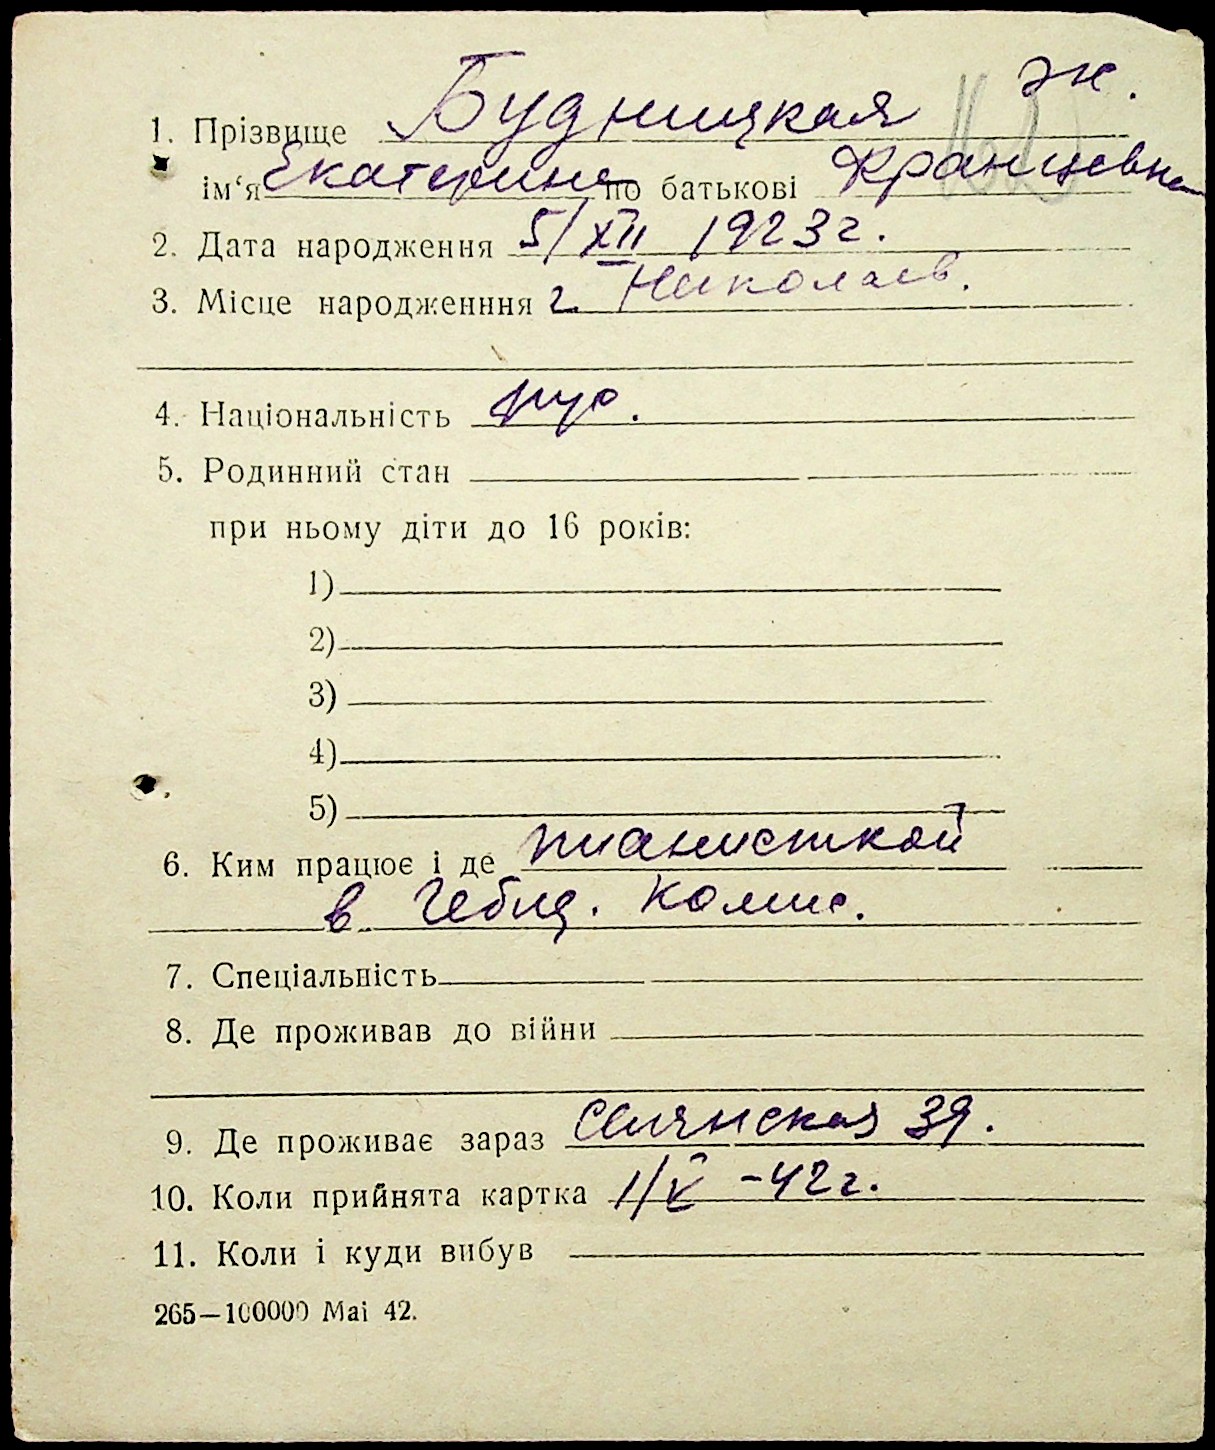 ж.
1. Прізвище Будницкая
ім‘я Екатерина по батькові Францевна
2. Дата народження 5/XII 1923 г.
3. Місце народженння г. Николаев.
4. Національність рус.
5. Родинний стан
при ньому діти до 16 років:
1)
2)
3)
4)
5)
6. Ким працює і де пианисткой
в Гебид. Комис.
7. Спеціальність
8. Де проживав до війни
9. Де проживає зараз 39.
10. Коли прийнята картка 1/V -42 г.
11. Коли і куди вибув
265—100000 Mai 42.